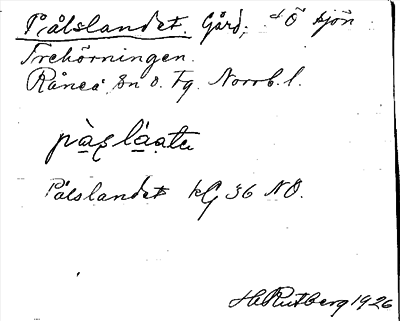 Pålslandet. Gård, Ö sjön
Trehörningen.
Råneå sn o. Tg. Norrb. l.
Pålslandet kG 36 NÖ.
H Rutberg 1926